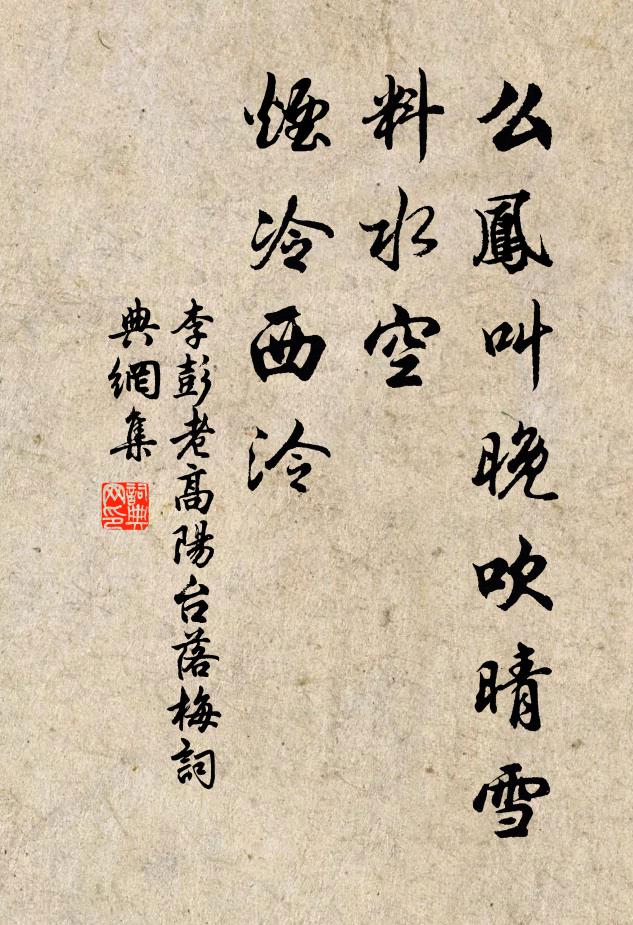 么鳳叫晚吹晴雪
料水空
煙冷西泠
李彭老高陽台落梅詞
典網集
詞典
网印